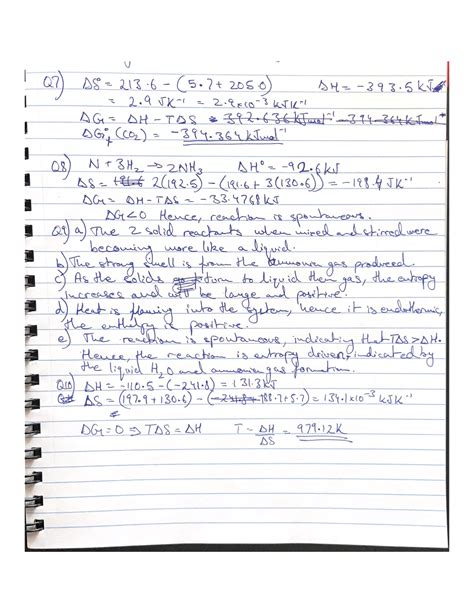 Q7) ΔS° = 213.6 - (5.7 + 205.0) ΔH = -393.5 kJ
= 2.9 JK⁻¹ = 2.9×10⁻³ kJK⁻¹
ΔG = ΔH - TΔS = -392.636 kJmol⁻¹ -394.364 kJmol⁻¹
ΔG°f (CO₂) = -394.364 kJmol⁻¹
Q8) N + 3H₂ → 2NH₃ ΔH° = -92.6 kJ
ΔS = 191.6 2(192.5) - (191.6 + 3(130.6)) = -198.4 JK⁻¹
ΔG = ΔH - TΔS = -33.4768 kJ
ΔG<0 Hence, reaction is spontaneous.
Q9) a) The 2 solid reactants when mixed and stirred were
becoming more like a liquid.
b) The strong smell is from the ammonia gas produced.
c) As the solids turn to liquid then gas, the entropy
increases and will be large and positive.
d) Heat is flowing into the system, hence it is endothermic,
the enthalpy is positive.
e) The reaction is spontaneous, indicating that TΔS > ΔH.
Hence, the reaction is entropy driven, indicated by
the liquid H₂O and ammonia gas formation.
Q10) ΔH = -110.5 - (-241.8) = 131.3 kJ
ΔS = (197.9 + 130.6) - (188.7 + 5.7) = 134.1×10⁻³ kJK⁻¹
ΔG = 0 ⇒ TΔS = ΔH T = ΔH/ΔS = 979.12K